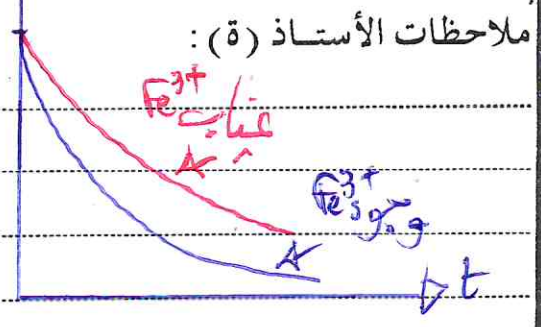 ملاحظات الأستاذ (ة) :
Fe³⁺
غياب
Fe³⁺
وجود
t